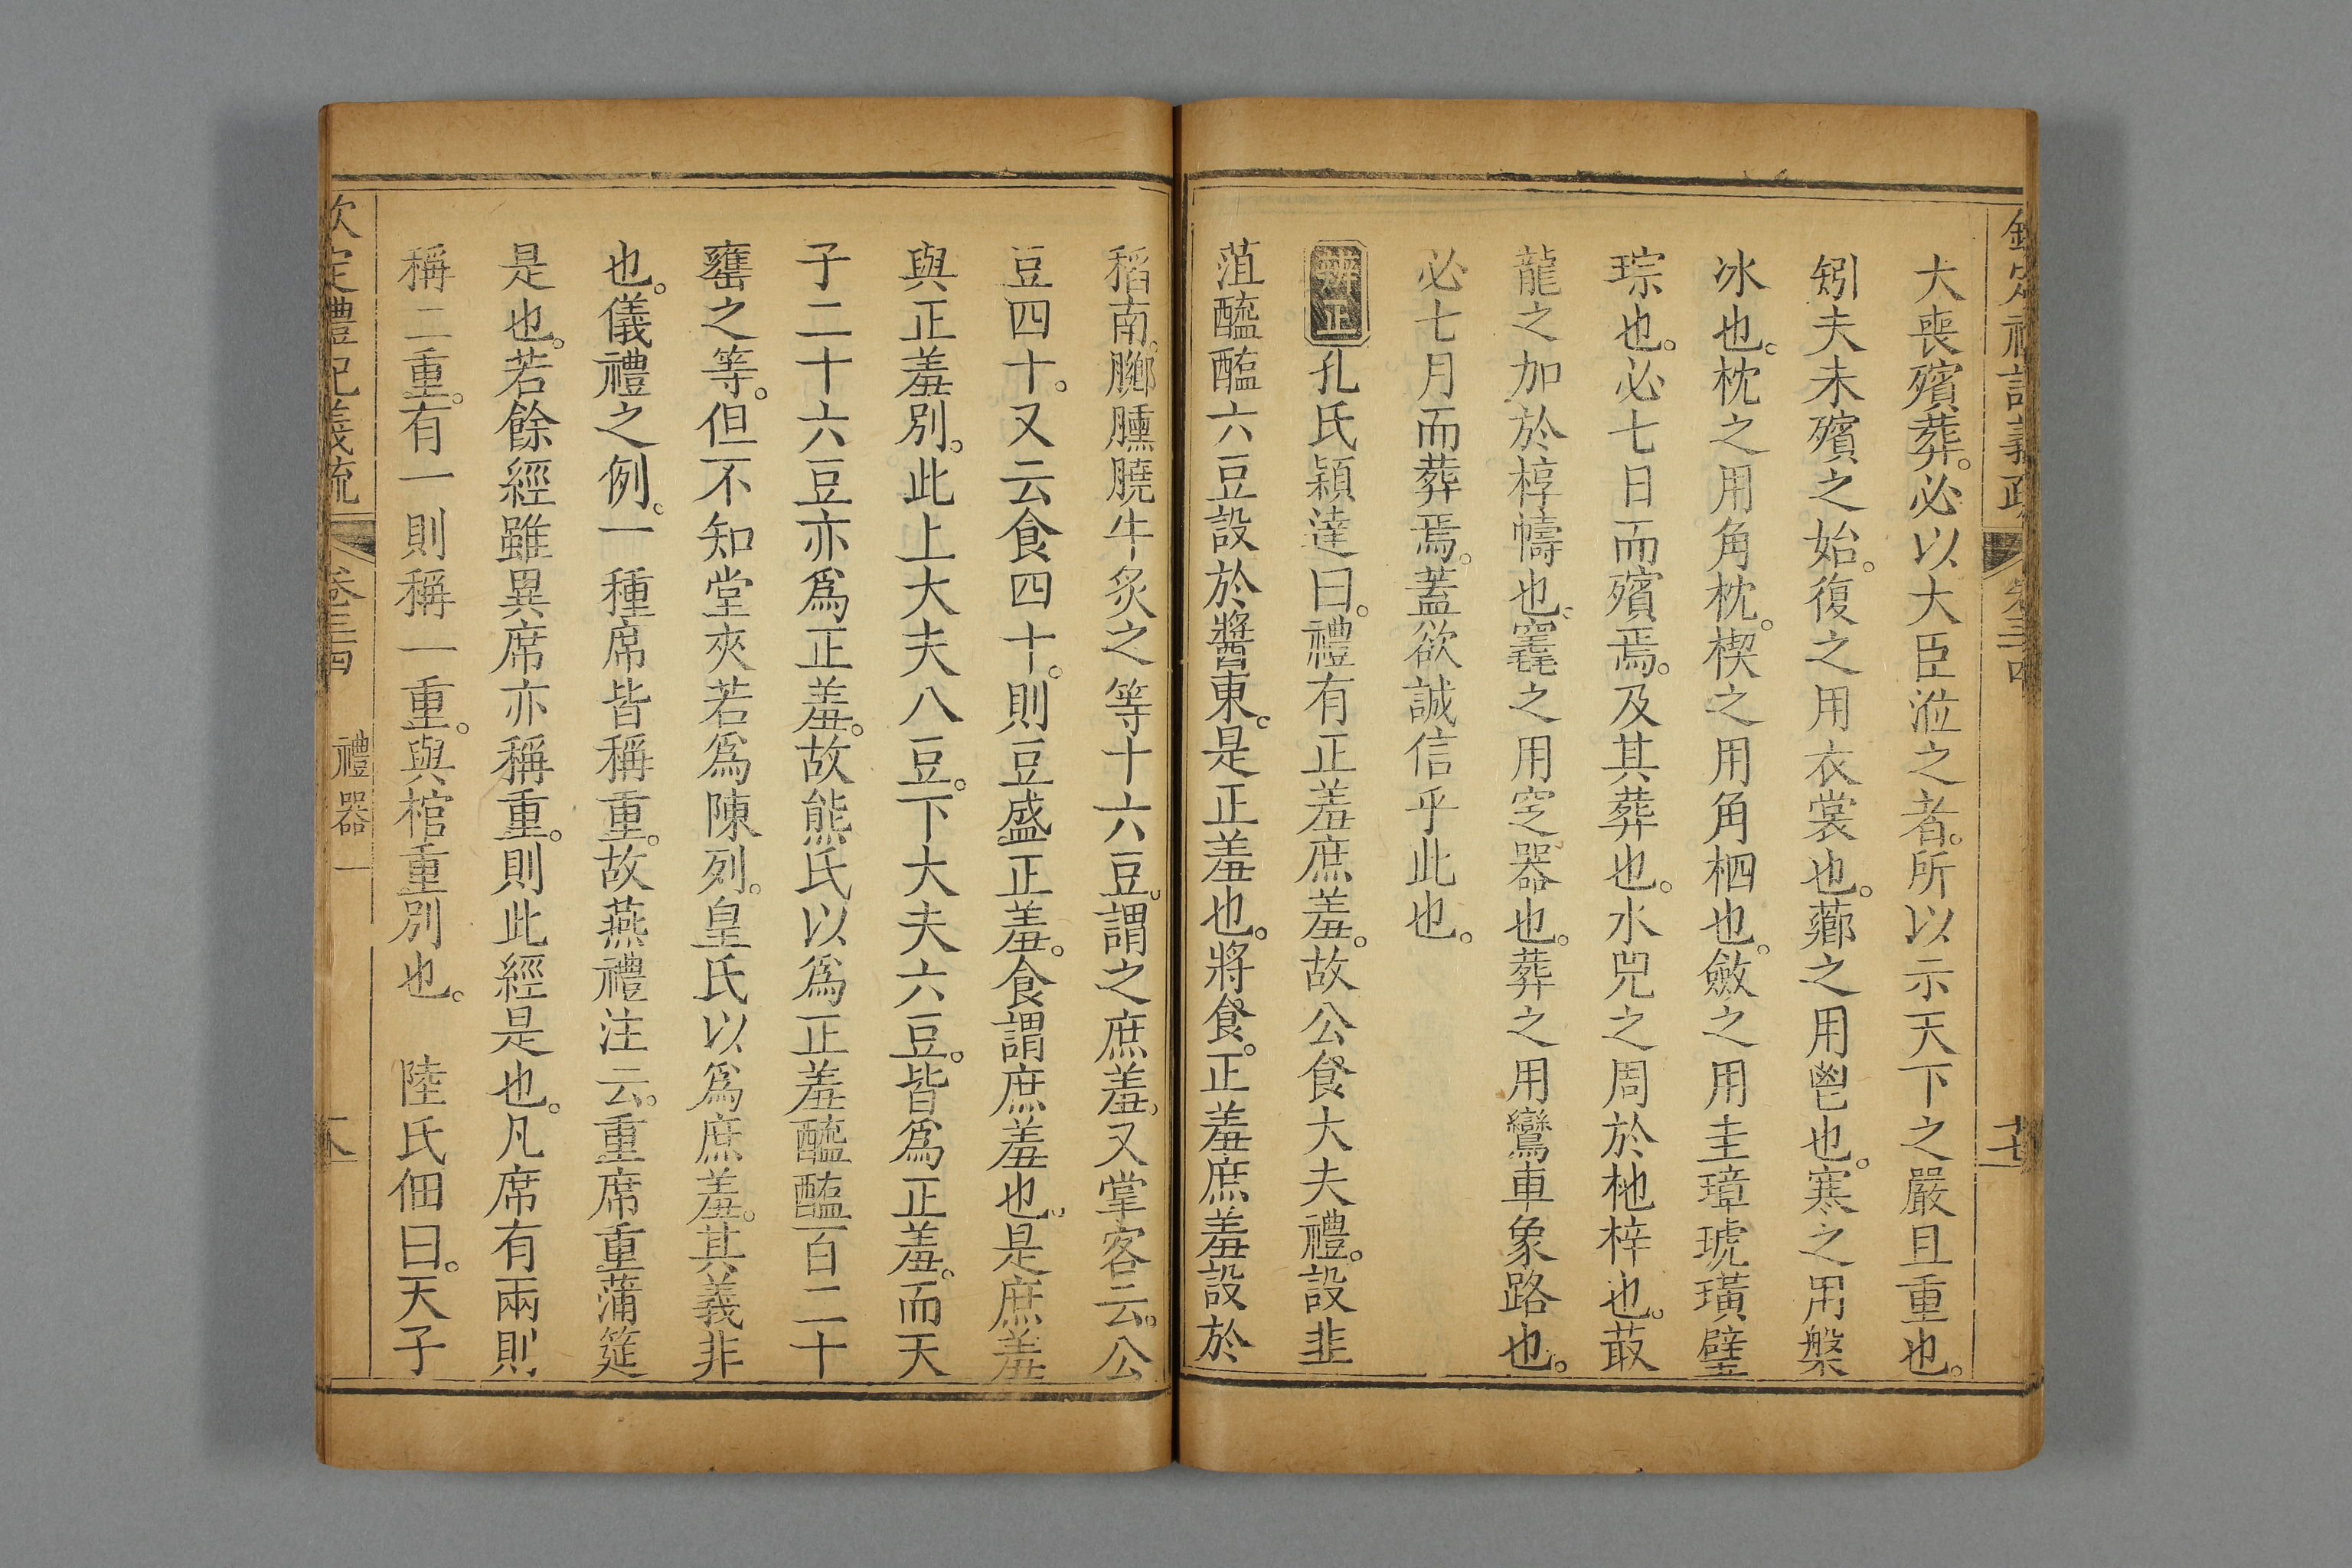 欽定禮記義疏 卷三十四 十七
大喪殯葬。必以大臣涖之者。所以示天下之嚴且重也。
矧夫未殯之始。復之用衣裳也。薌之用鬯也。寒之用槃
冰也。枕之用角枕。楔之用角柶也。斂之用圭璋琥璜璧
琮也。必七日而殯焉。及其葬也。水兕之周於杝梓也。菆
龍之加於椁幬也。窆之用窆器也。葬之用鸞車象路也。
必七月而葬焉。蓋欲誠信乎此也。
辨正 孔氏穎達曰。禮有正羞庶羞。故公食大夫禮。設韭
菹醓醢六豆設於醬東。是正羞也。將食。正羞庶羞設於
稻南。膷臐膮牛炙之等十六豆。謂之庶羞。又掌客云。公
豆四十。又云食四十。則豆盛正羞。食謂庶羞也。是庶羞
與正羞別。此上大夫八豆。下大夫六豆。皆爲正羞。而天
子二十六豆亦爲正羞。故熊氏以爲正羞醓醢百二十
罋之等。但不知堂夾若爲陳列。皇氏以爲庶羞。其義非
也。儀禮之例。一種席皆稱重。故燕禮注云。重席重蒲筵
是也。若餘經雖異席亦稱重。則此經是也。凡席有兩則
稱二重。有一則稱一重。與棺重別也。 陸氏佃曰。天子
欽定禮記義疏 卷三十四 禮器一